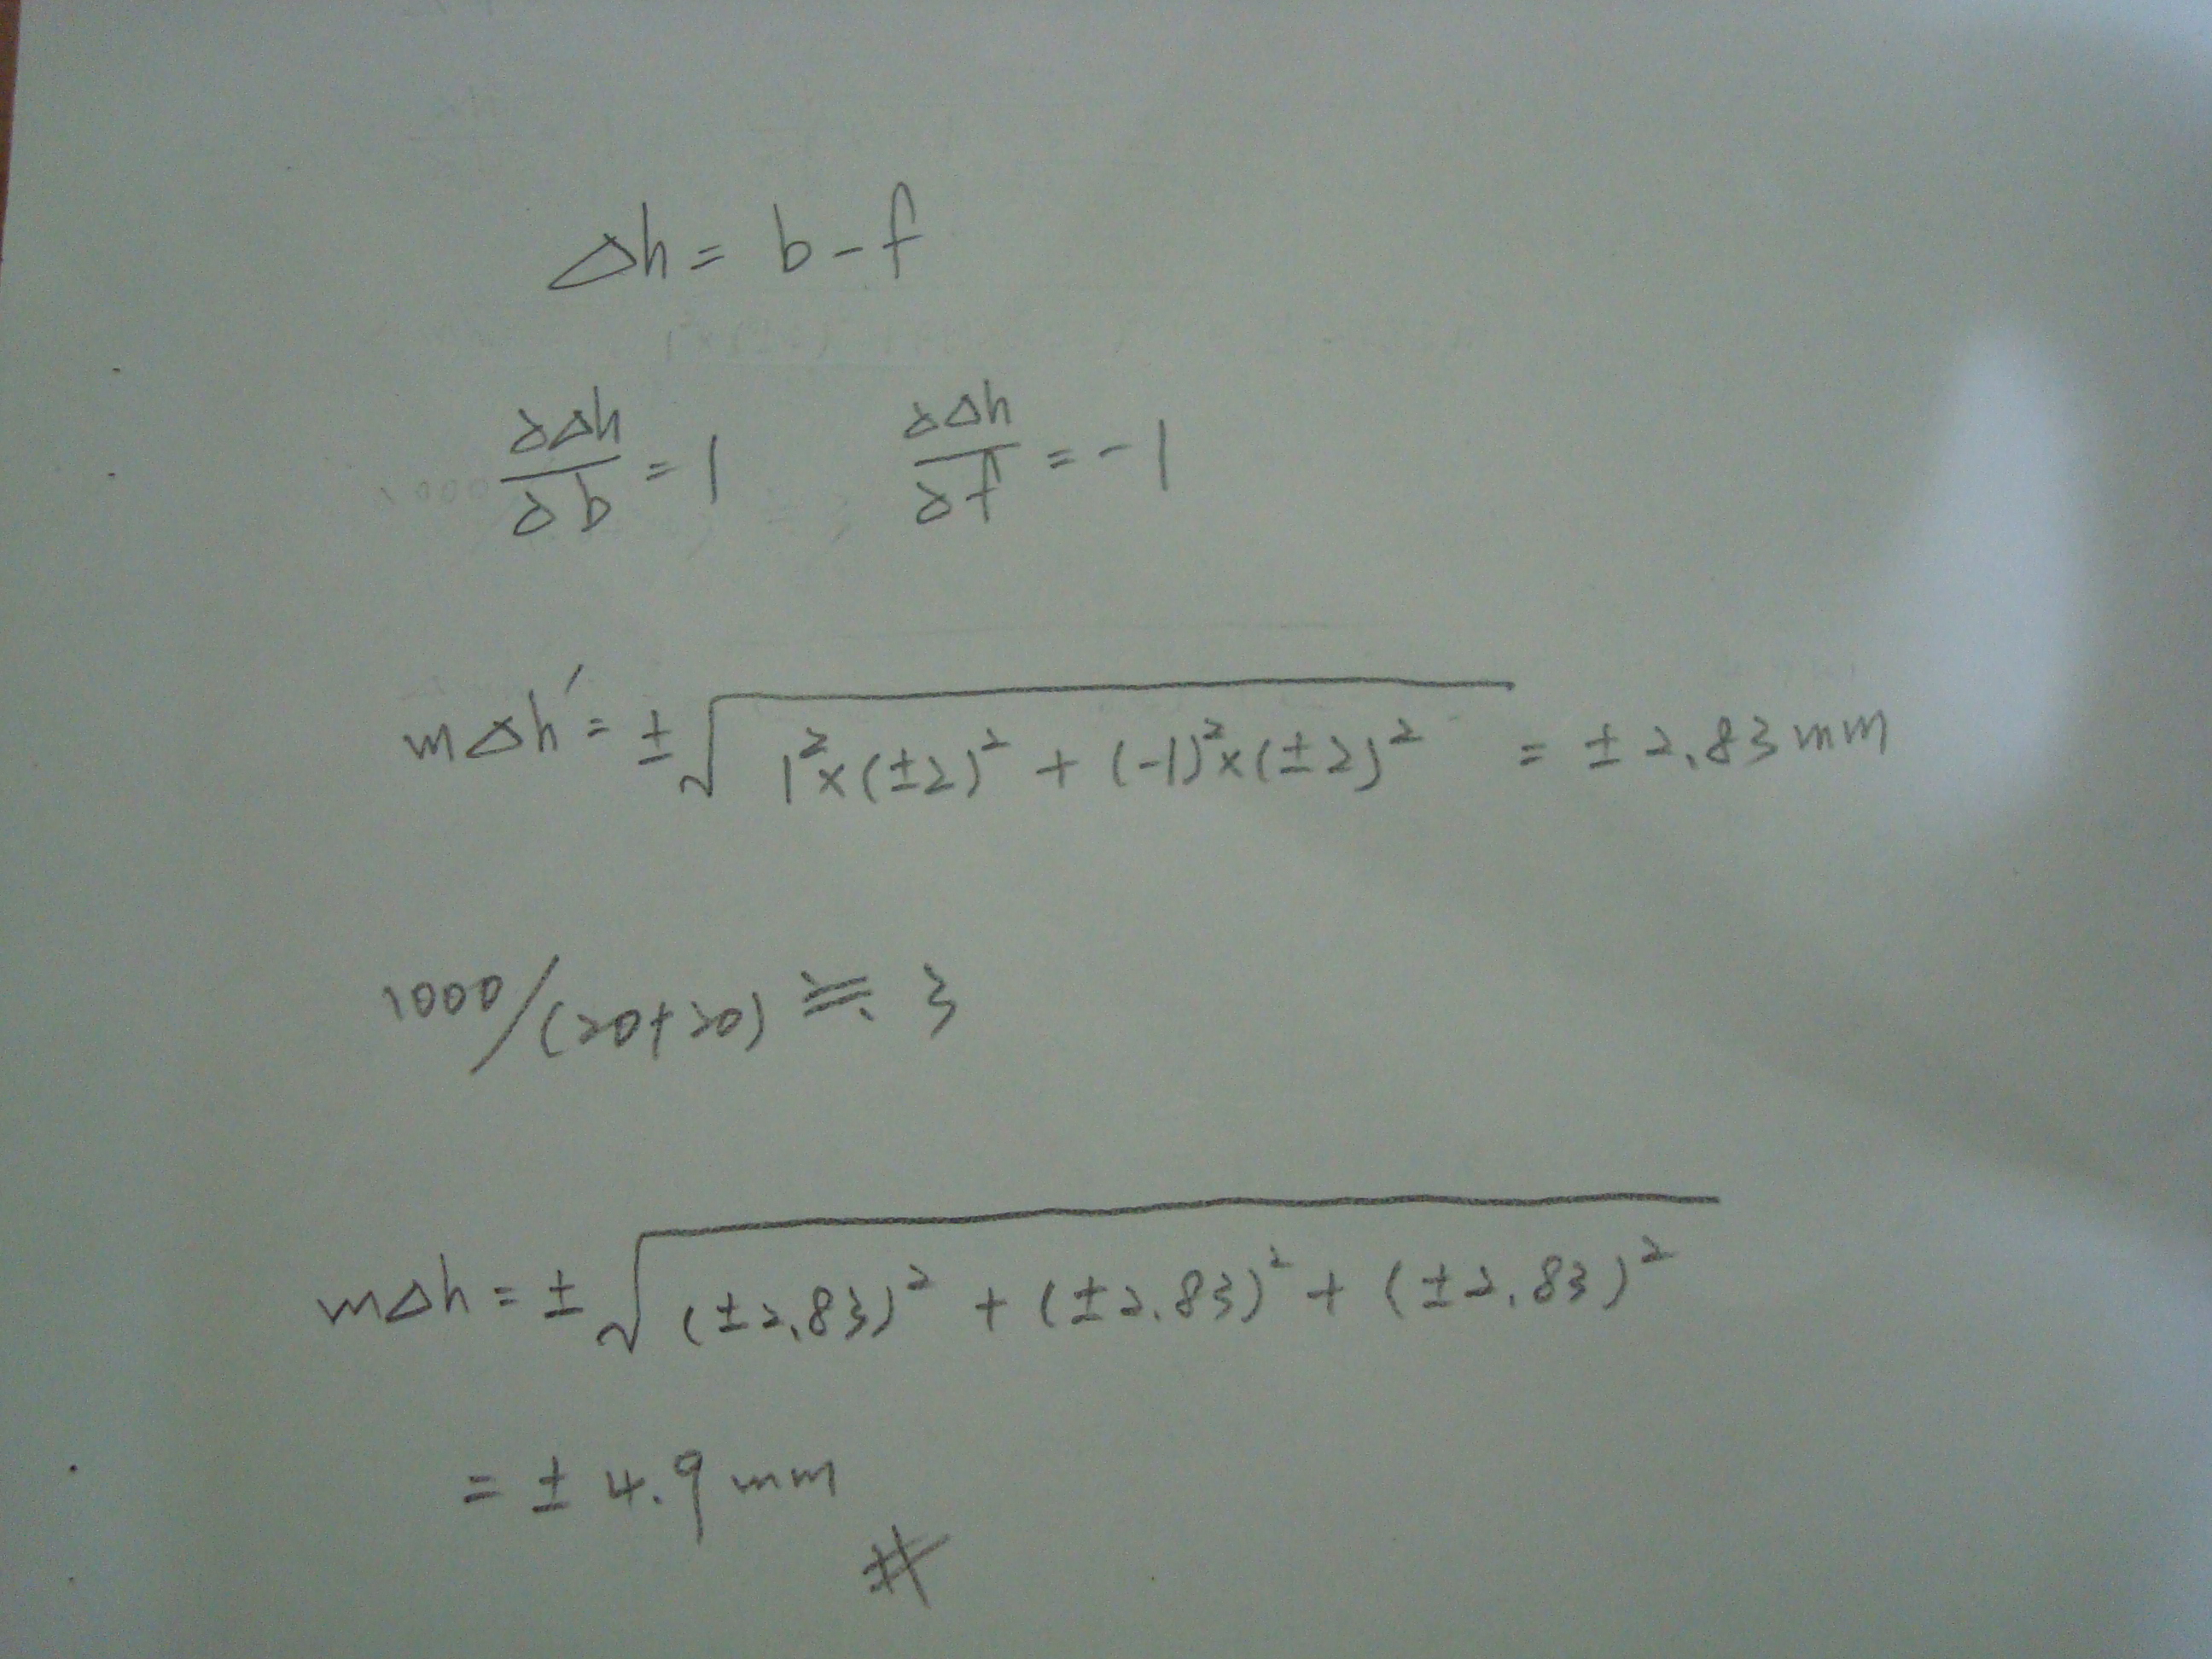 Δh = b - f
∂Δh/∂b = 1 ∂Δh/∂f = -1
mΔh' = ±√(1²×(±2)² + (-1)²×(±2)²) = ±2.83mm
1000/(20+20) ≒ 3
mΔh = ±√((±2.83)² + (±2.83)² + (±2.83)²)
= ±4.9mm
#